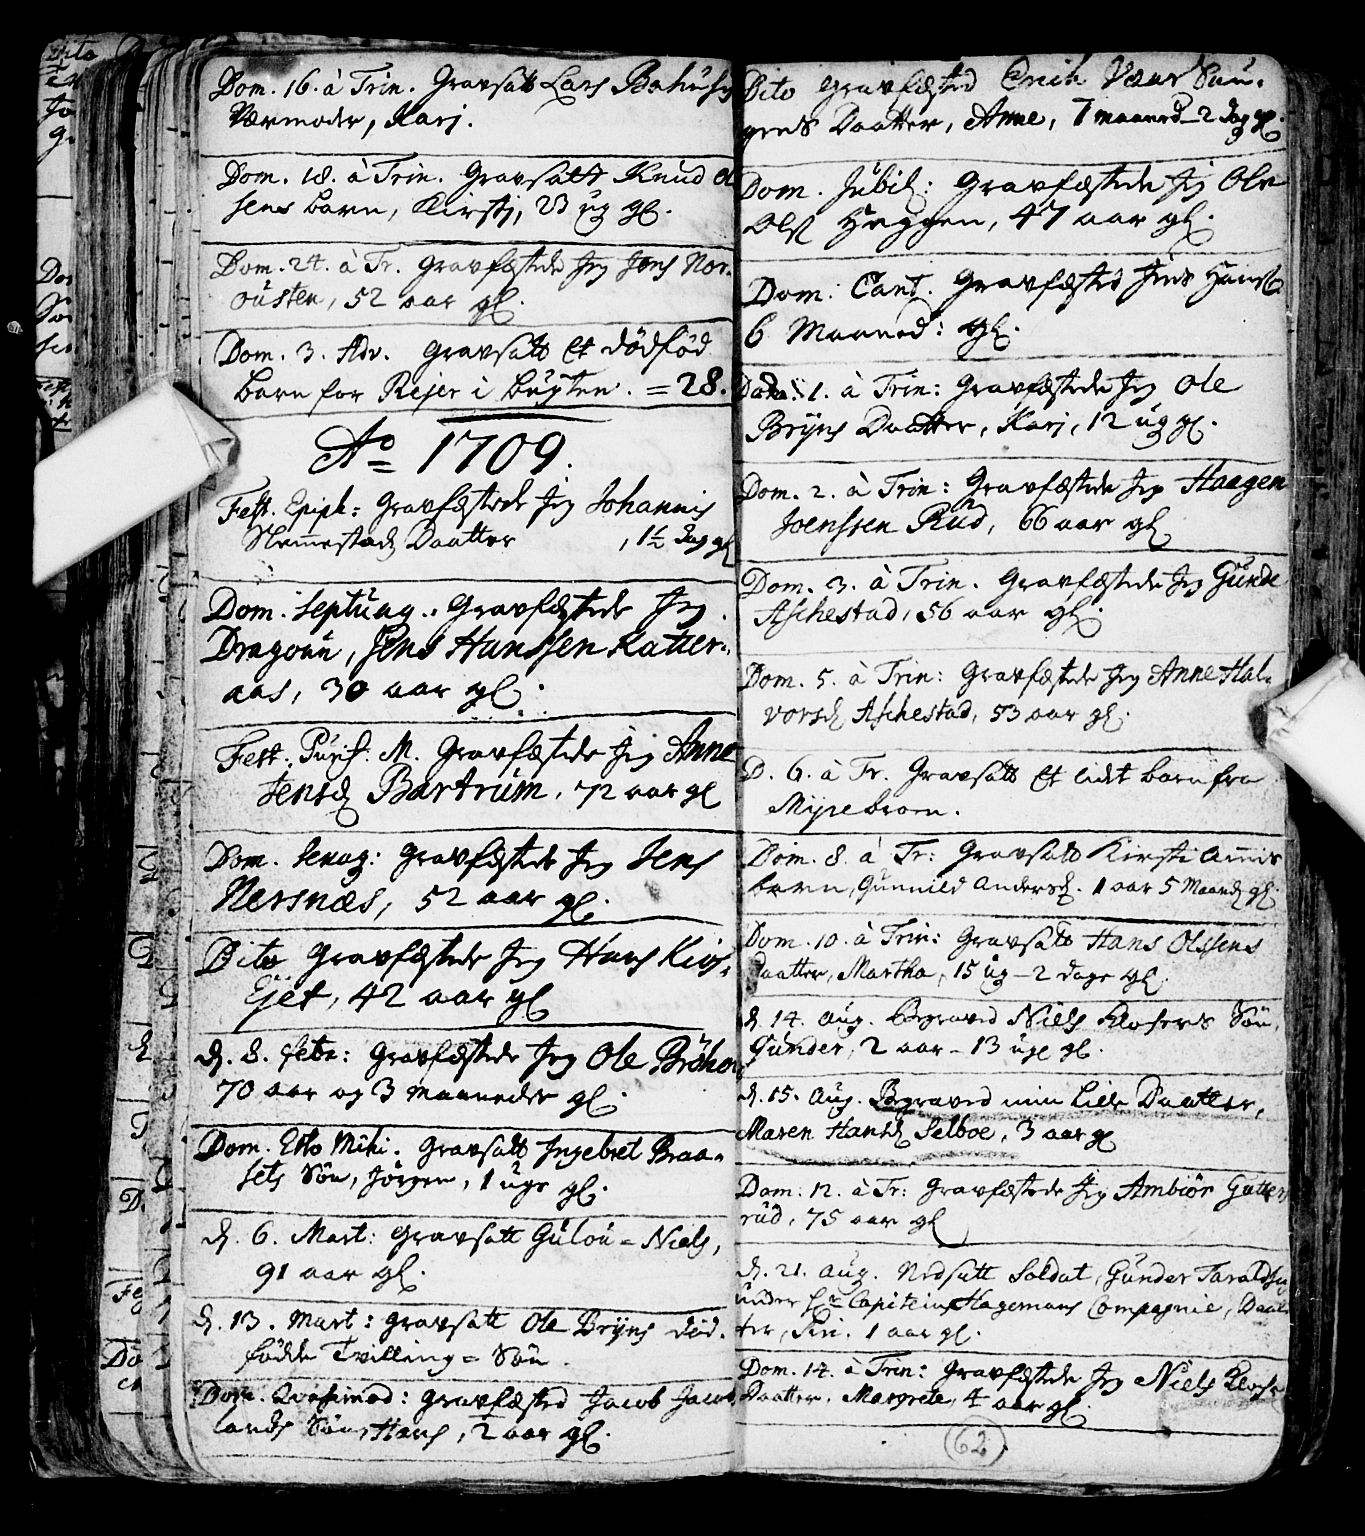 Dom. 16. à Trin. Gravsatt Lars Bahus
Værmoder, Karj.
Dom. 18. à Trin. Gravsatt Knud Ol
sens barn, Kirstj, 23 ug gl.
Dom. 24. à Tr. Gravfæstede Jeg Jens Nor-
ousten, 52 aar gl.
Dom. 3. Adv. Gravsatt Et dödföd
barn for Rejer i bugten. = 28.
Ao 1709.
Fest. Epiph: Gravfæstede Jeg Johannis
Slemestad Daatter, 1½ dag gl
Dom. Septuag. Gravfæstede Jeg
Dragoun, Jens Hanssen Katter-
aas, 30 aar gl.
Fest. Purif. M. Gravfæstede Jeg Anne
Jensd Bartrum, 72 aar gl
Dom. Sexag: Gravfæstede Jeg Jens
Nersnæs, 52 aar gl.
Dito Gravfæstede Jeg Hans Kirs-
Ejet, 42 aar gl
d. 8. Febr: Gravfæstede Jeg Ole Bröken
70 aar og 3 maaneder gl.
Dom. Esto Mihi. Gravsatt Ingebret Braa-
sets Sön, Jörgen, 1 uge gl.
d. 6. Mart: Gravsatt Gulou = Niels,
91 aar gl.
d. 13. Mart: Gravsatt Ole Bryns död-
födde Tvilling = Sön.
Dom. Quasimod: Gravfæsted Jacob Jacob
lands Sön, Hans, 2 aar gl.
Dito Gravfæsted Erich Vær Sau-
grens Daatter, Anne, 7 maaned - 2 dag gl.
Dom. Jubil: Gravfæstede Jeg Ole
Ols Heggen, 47 aar gl.
Dom. Cant. Gravfæsted Jens Hans
6 Maaned: gl.
Dom. 1. à Trin: Gravfæstede Jeg Ole
Bryns Daatter, Karj, 12 ug gl.
Dom. 2. à Trin: Gravfæstede Jeg Haagen
Joenssen Rud, 66 aar gl
Dom. 3. à Trin. Gravfæstede Jeg Gunde
Aschestad, 56 aar gl.
Dom. 5. à Trin: Gravfæstede Jeg Anne Hal-
vorsd Aschestad, 53 aar gl.
D. 6. à Tr. Gravsatt Et lidt barn fra
Myrebraan.
Dom. 8. à Tr: Gravsatt Kirsti Annis
barn, Gunnild Andersd. 1 aar 5 Maaned gl.
Dom. 10. à Trin: Gravsatt Hans Olssens
Daatter, Martha, 15 ug - 2 dage gl.
d. 14. Aug. Begraved Niels Klosers Sön,
Gunder, 2 aar - 13 uge gl.
d. 15. Aug. Begraved min Lille Daatter,
Maren Hansd Selboe, 3 aar gl
Dom: 12. à Tr: Gravfæstede Jeg Ambiör Gutter
rud, 75 aar gl
d. 21. Aug. Nedsatt Soldat, Gunder Taralds
under Hr Capiteins Hagemans Compagnie, Daat
ter, Siri. 1 aar gl.
Dom. 14. à Trin: Gravfæstede Jeg Niels Klos
Daatter, Margrete, 4 aar gl.
62